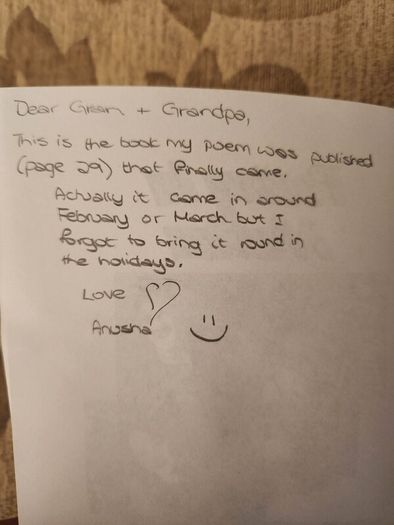 Dear Gran + Grandpa,
This is the book my poem was published
(page 29) that finally came.
Actually it came in around
February or March but I
forgot to bring it round in
the holidays.
Love
Anusha